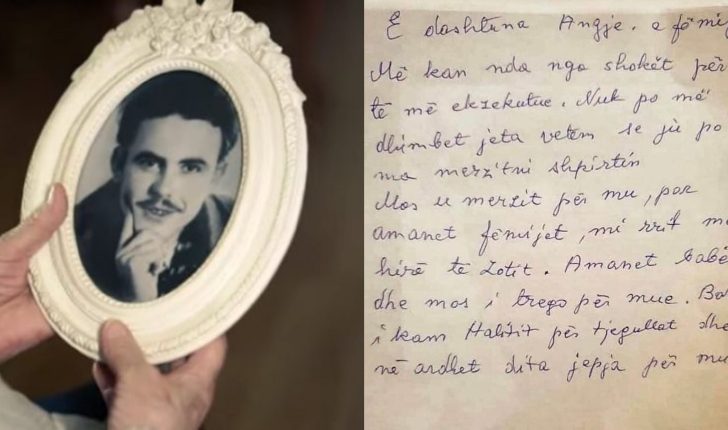 E dashtuna Angje. e fëmij
Më kan nda nga shokët për
të më ekzekutue. Nuk po më
dhimbet jeta vetëm se ju po
ma merzitni shpirtin
Mos u merzit për mu, por
amanet fëmijet, mi rrit me
hirë të Zotit. Amanet babë
dhe mos i trego për mue. Bor
i kam Halitit për tjegullat dhe
në ardhet dita jepja për mu